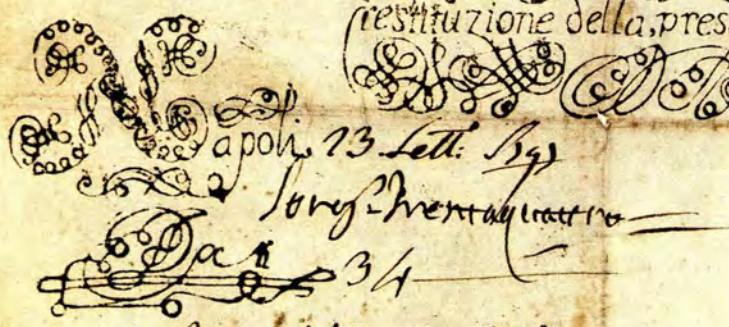 restituzione della, pres
Napoli 23 Sett:
trentaquattro
Dan 34